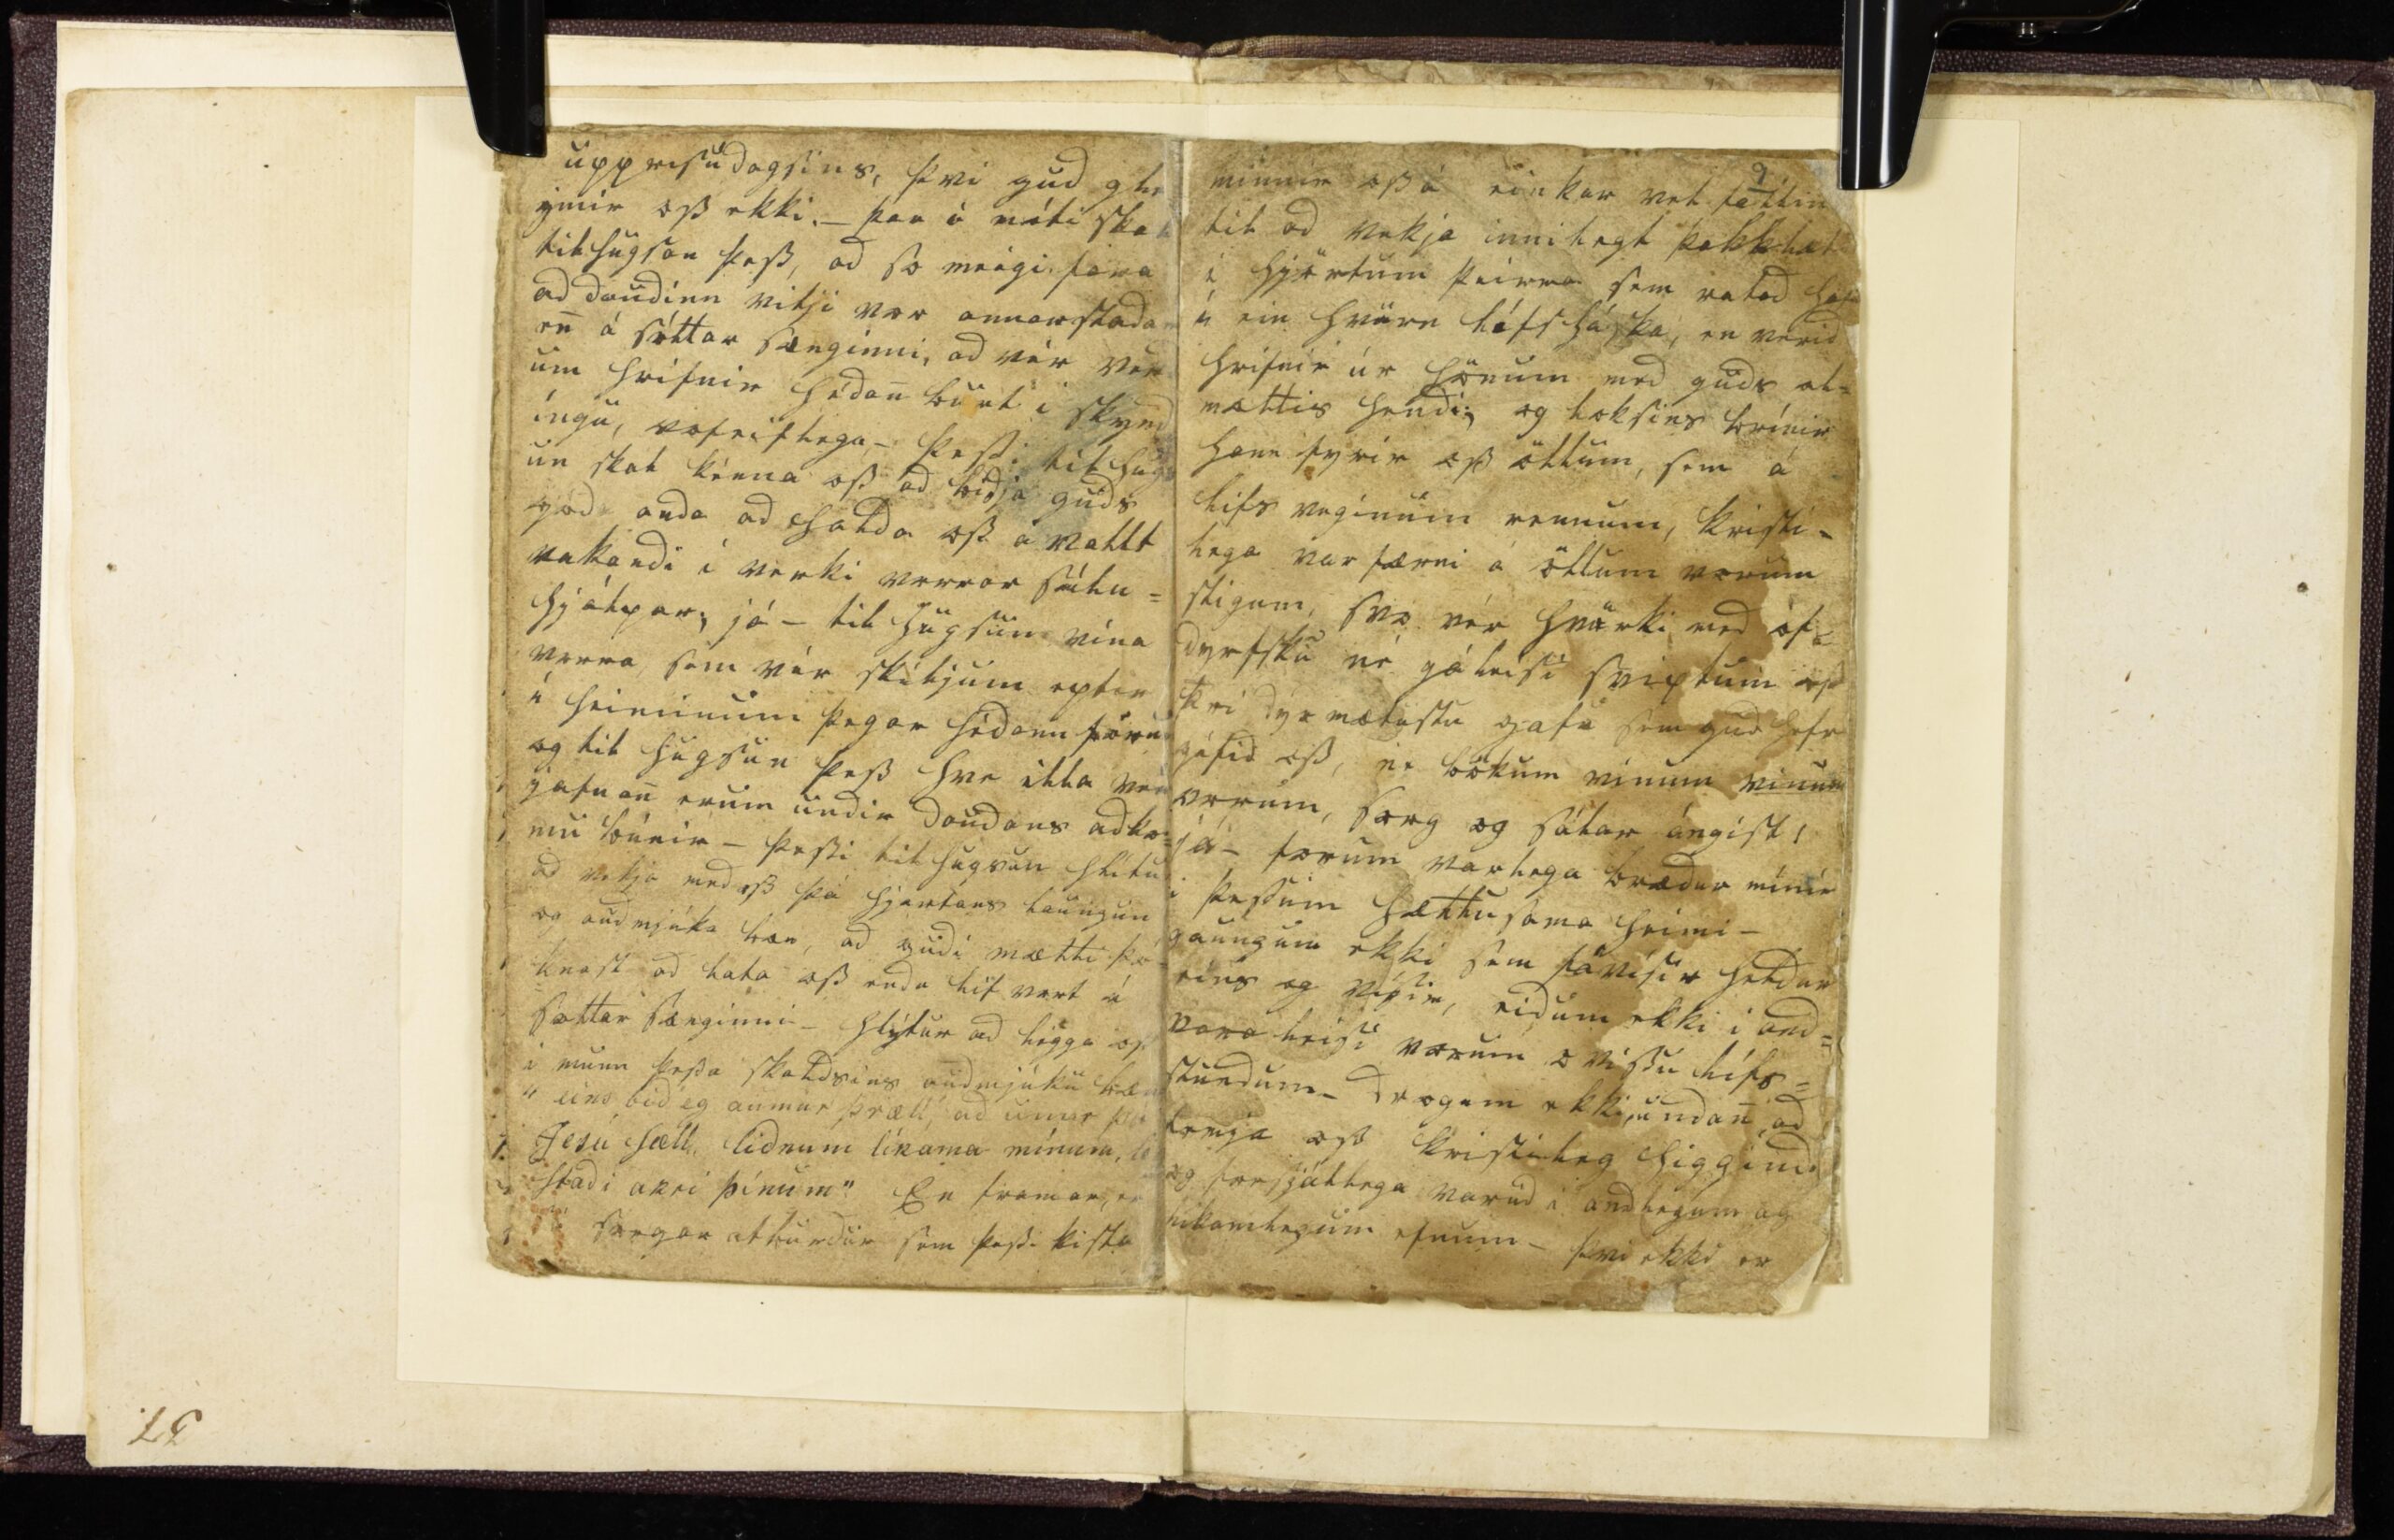 upprisudagsins, því gud gle
ymir oß ekki. – þar á móti skal
tilhugsan þeß, ad so meigi fara
ad daudinn vitji vor annarstadar
en̄ á sóttar sænginni, ad vér ver
um hrifnir hédan̄ burt í skynd
íngu, voveiflega, – þeßi tilhugs
un skal kenna oß ad bidja guds
góda anda ad halda oß ávallt
vakandi í verki vorrar sálu=
hjálpar, já – tilhugsun vina
vorra, sem vér skiljum eptir
í heiminum þegar hédann förum
og tilhugsun þeß hve illa vér
jafnan̄ erum undir daudans adko=
mu búnir – þeßi tilhugsun hlítur
ad vekja med oß þá hjartans laungun
og audmjúka bæn, ad gudi mætti þó
knast ad lata oß enda líf vort á
sóttar sænginni – hlýtur ad leggja oß
í munn þeßa skaldsins audmjúku bæn
„ eins bid eg aumur þræll, ad unnir þú
Jesú sæll, lidnum líkama mínum,
stad í akri þínum" En framar, er
sorgar atburdur sem þeßi kista
9
minnir oß á einkar vel fallin
til ad vekja innilegt þakklæti
í hjörtum þeirra sem ratad hafa
í ein hvörn lífsháska, en verid
hrifnir úr hönum med guds al=
mættis hendi; og loksins brínir
hann fyrir oß öllum, sem á
lífs veginum rennum, kristi-
lega varfærni á öllum vorum
stigum, svo vér hvörki med of=
dyrfsku né gáleisi sviptum oß
þeirri dýrmætustu gafu sem gud hefr
géfid oß, né bökum vinum vinum
vorum, sorg og sálar ángist,
já – forum varlega brædur mínir
í þeßum hættusama heimi –
gaungum ekki sem fávísir heldur
eins og vísir, eidum ekki í and=
varaleisi vorum óvissu lífs=
stundum – drogum ekki undan̄, ad
temja oß kristileg hyggindi
og forsjállega varud í andlegum og
líkamlegum efnum – því ekki er
57